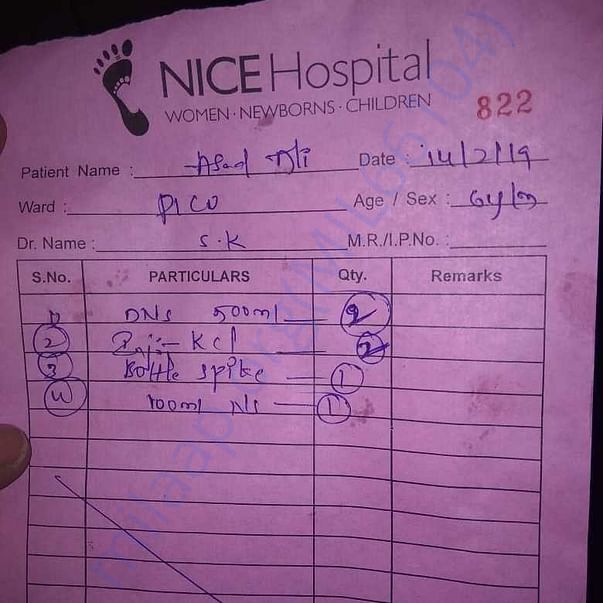 NICE Hospital
WOMEN · NEWBORNS · CHILDREN
822
Patient Name : Asad Ali Date : 14/2/19
Ward : PICU Age / Sex : 6y/
Dr. Name : S.K M.R./I.P.No. :
S.No. PARTICULARS Qty. Remarks
1) DNS 500ml — 2
2 Inj:- KCl — 2
3 Bottle spike — 1
4 100ml NS — 1
milaap.org(MIL66104)